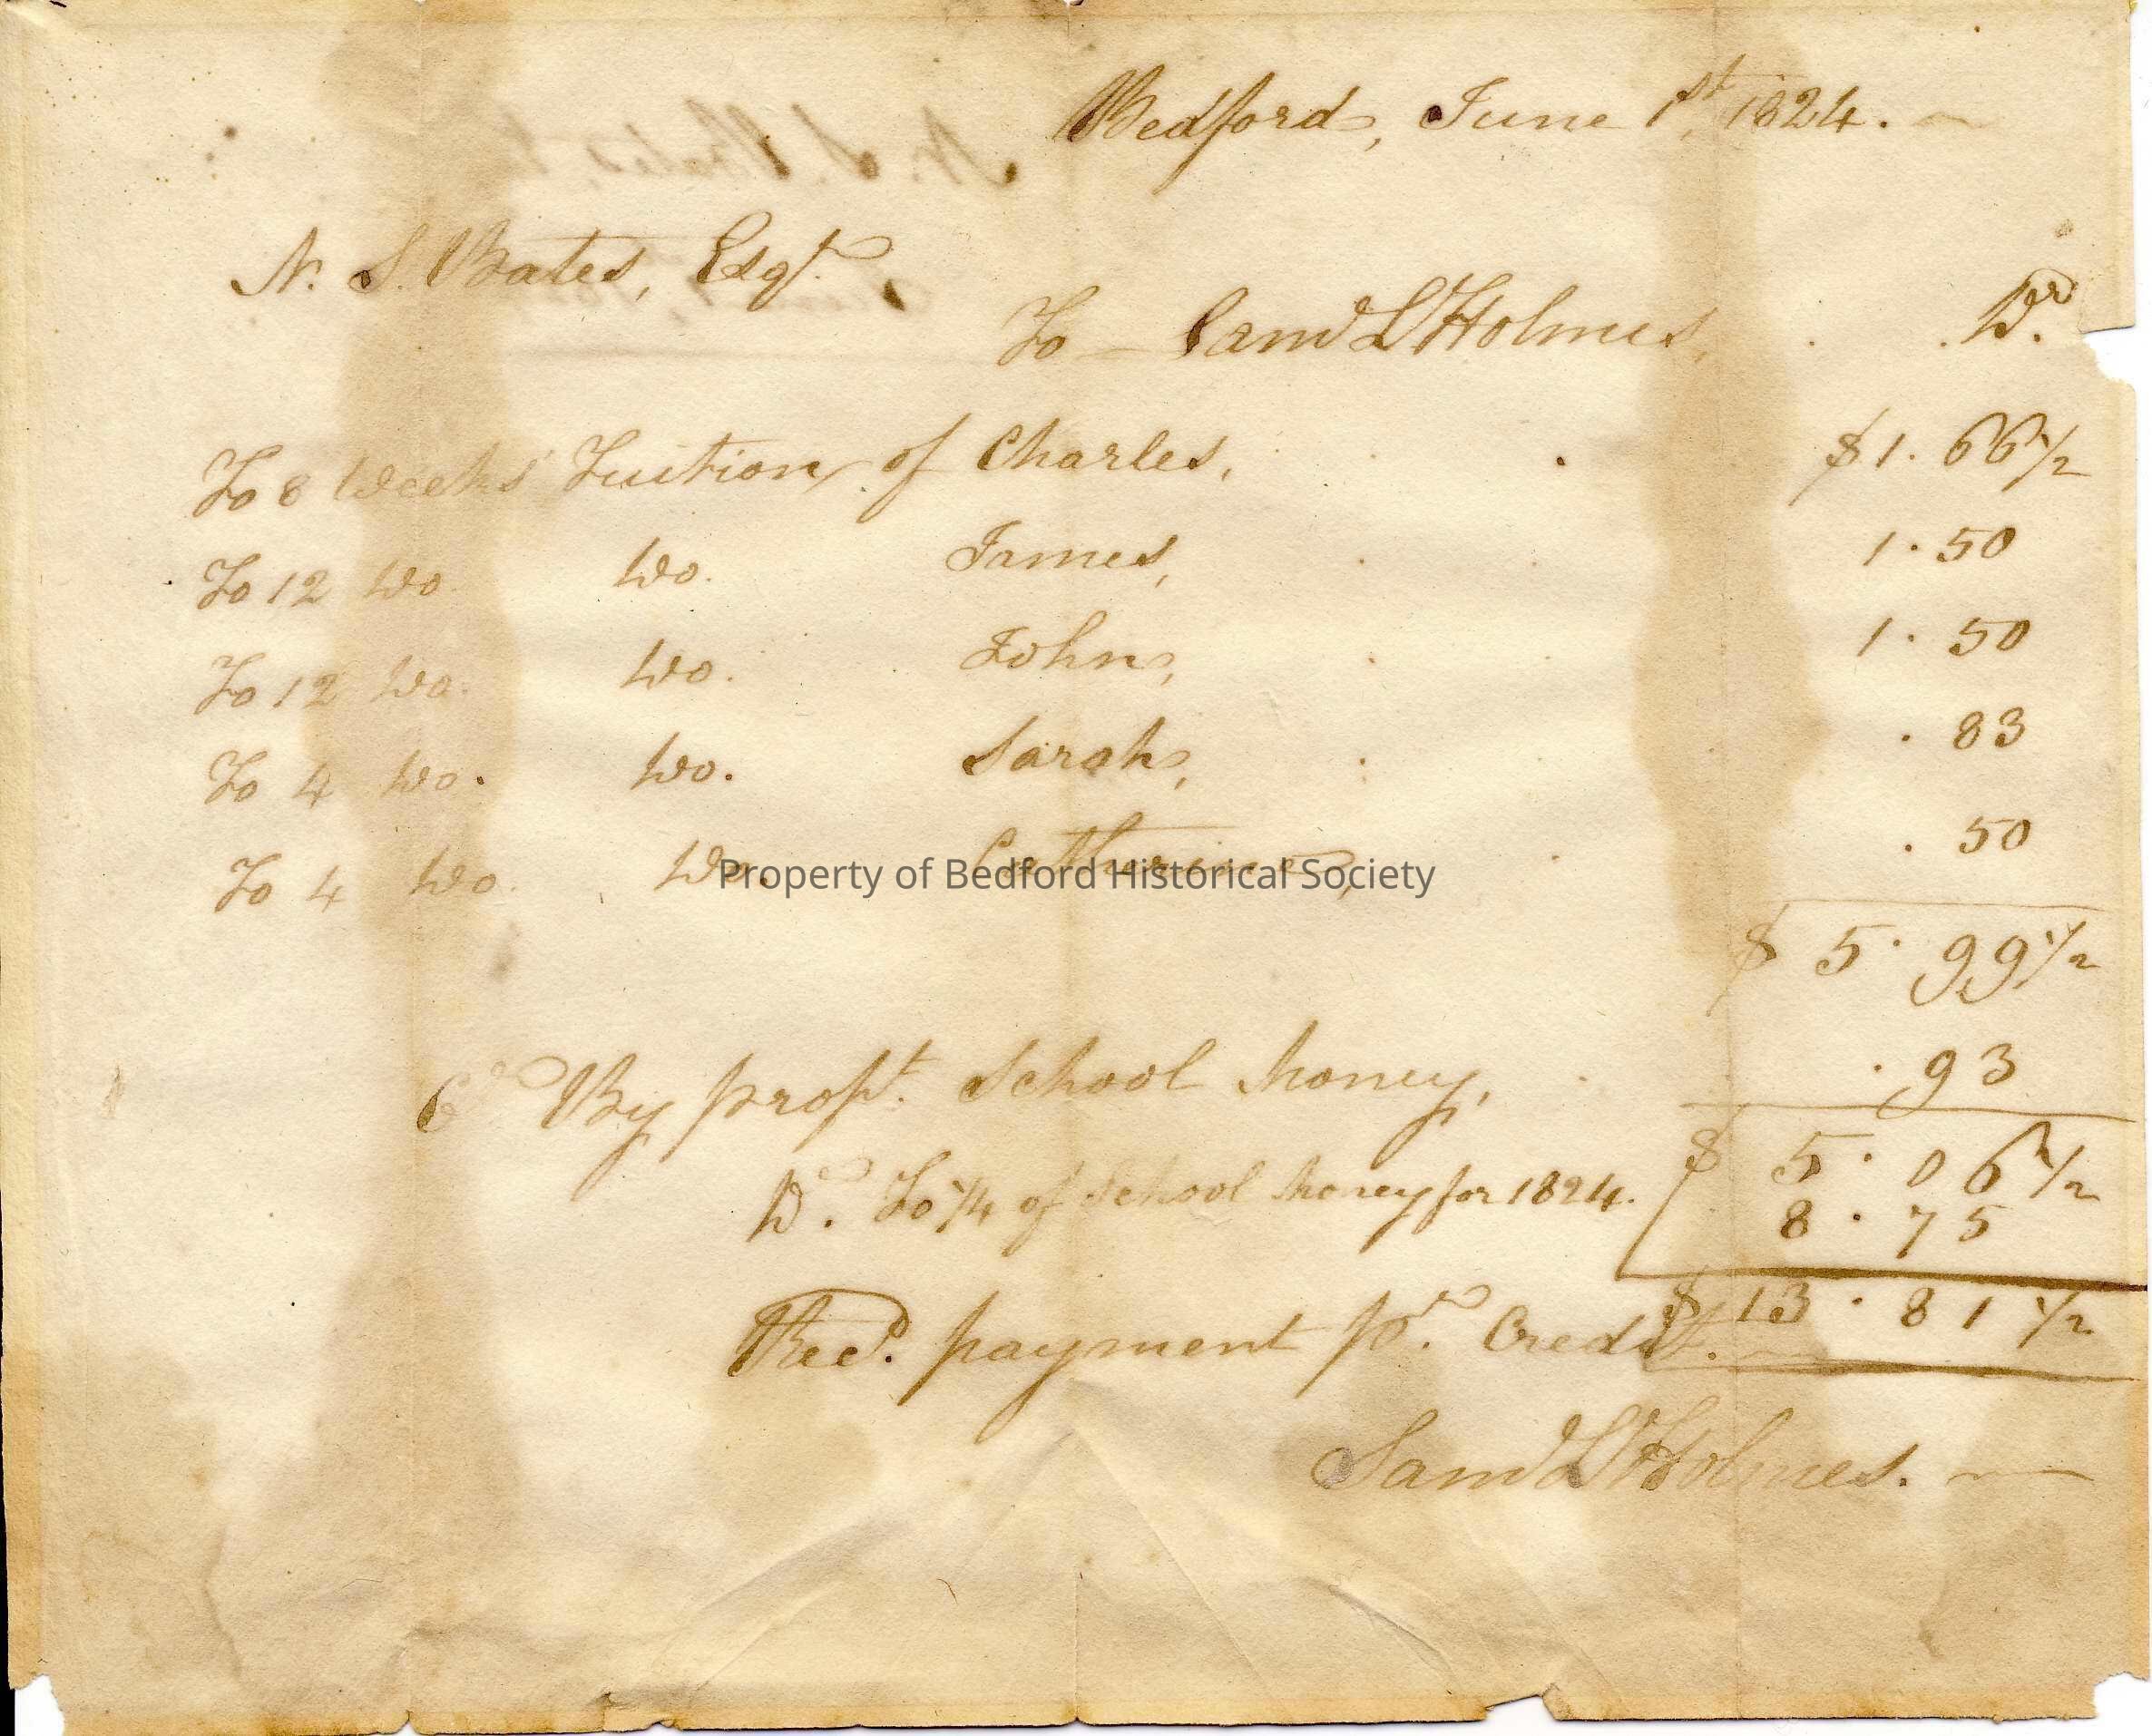 Bedford, June 1st, 1824.
N. S. Bates, Esqr.
To Saml L Holmes, Dr.
To 8 Weeks' Tuition of Charles, $1.66 1/2
To 12 Do. Do. James, 1.50
To 12 Do. Do. John, 1.50
To 4 Do. Do. Sarah, .83
To 4 Do. Do. Catherine, .50
Property of Bedford Historical Society
$5.99 1/2
Cr By propt. School Money, .93
$5.06 1/2
Dr. To 1/4 of School Money for 1824. 8.75
$13.81 1/2
Recd. payment pr. Credit.
Saml L Holmes.